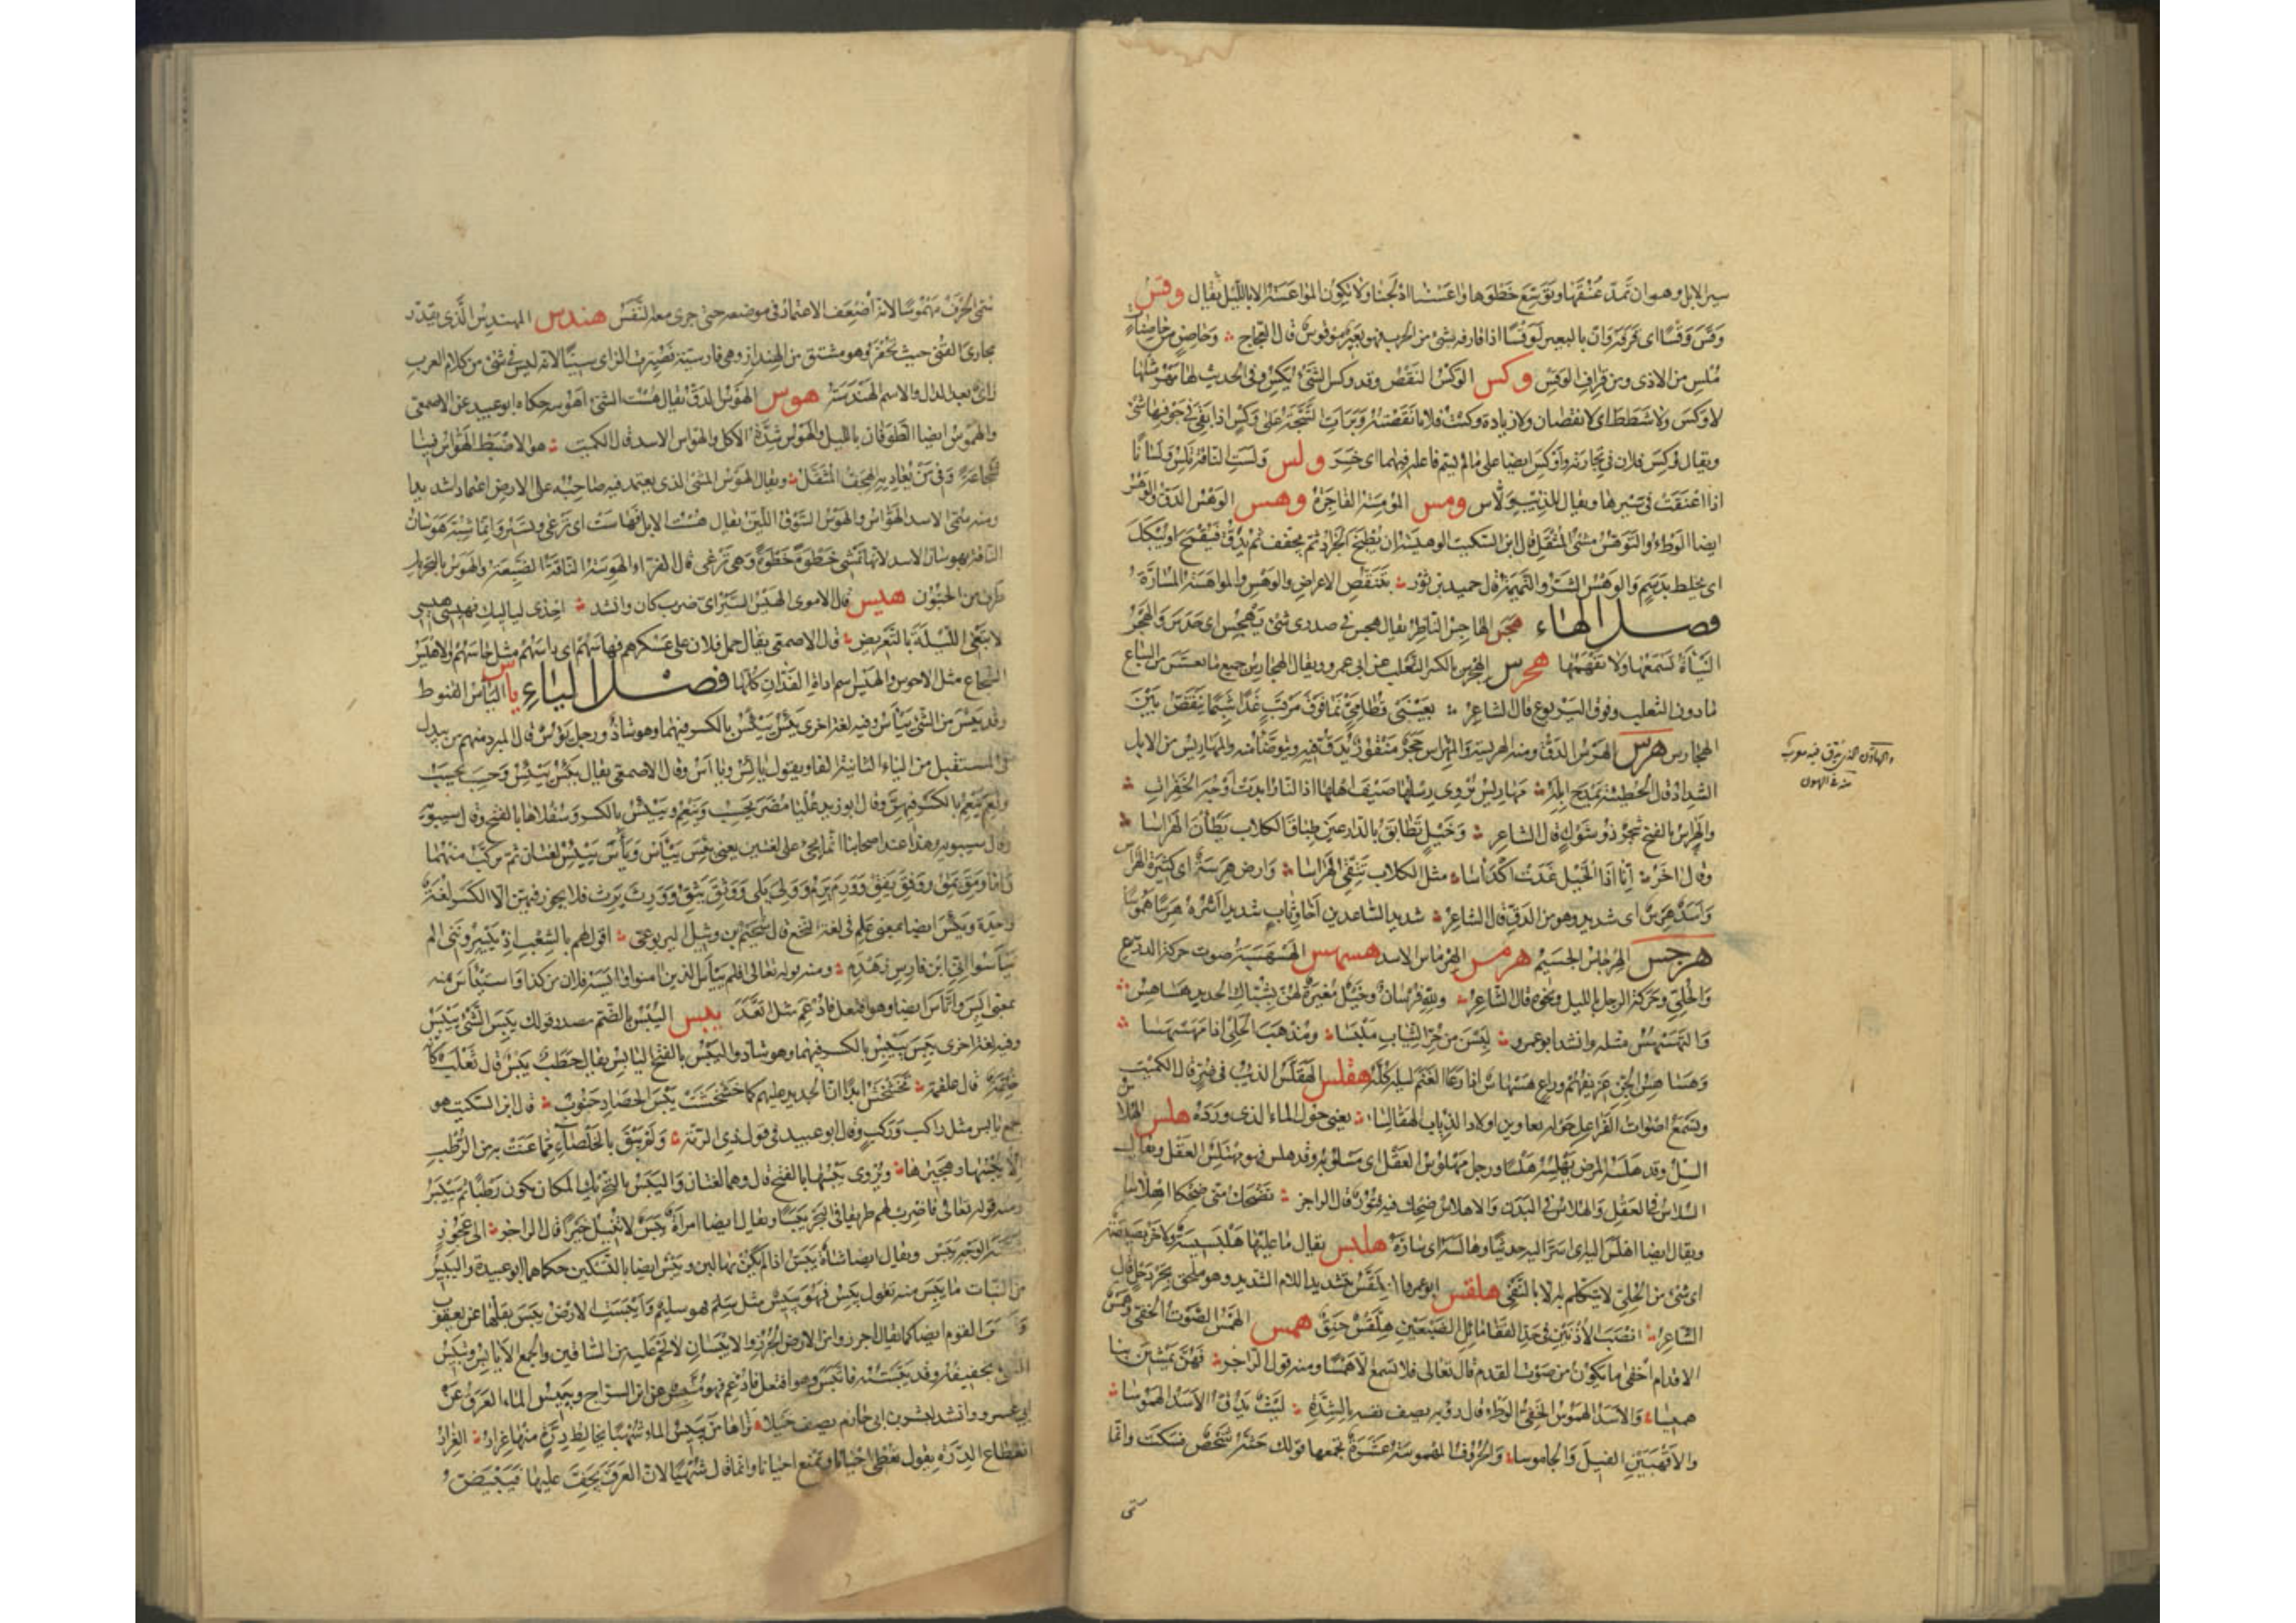 سير الابل وهو ان تمدّ عُنُقَها وتوسّع خَطْوَها وواعَسْنا ادلجنا ولا تكون المواعَسَة الا بالليل يقال وقس
وَقَسَه وَقْسًا اى قَرَفَه وان بالبعير لَوَقْسًا اذا قارفه شئ من الجرب فهو بعير موقوس قال العجاج وحاصن من حاصنات
مُلْسِ من الاذى ومن قِراف الوَقْسِ وكس الوكس النقص وقد وكس الشئ يكس وفى الحديث لها مهر مثلها
لا وَكْسَ ولا شَطَطَ اى لا نقصان ولا زيادة وكست فلانا نقصته وبرأت الشجة على وكس اذا بقى فى جوفها شئ
ويقال وُكِسَ فلان فى تجارته وأُوكِسَ ايضا على ما لم يسم فاعله فيهما اى خسر ولس ولست الناقة تلس ولسانا
اذا اعنقت فى سيرها ويقال للذيب ولاس ومس المومسة الفاجرة وهس الوهس الدق والوهس
ايضا الوطء والتوهس مشى المثقل قال ابن السكيت الوهيسة ان يطبخ الجراد ثم يجفف ثم يدق فيقمح او يبكل
اى يخلط بدسم والوهس الشر والنميمة قال حميد بن ثور بتنقص الاعراض والوهس والمواهسة المسارّة
فصل الهاء هجس الهاجس الخاطر يقال هجس فى صدرى شئ يهجس اى حدس والهجس
النبأة تسمعها ولا تفهمها هجرس الهجرس بالكسر الثعلب عن ابى عمرو ويقال الهجارس جميع ما تعسس من السباع
ما دون الثعلب وفوق اليربوع قال الشاعر بعينى قطامى نما فوق مرقب غدا شبما ينقض بين
الهجارس هرس الهرس الدق ومنه الهريسة والمهراس حجر منقور يدق فيه ويتوضأ منه والمهاريس من الابل
والهاون الذى يدق فيه معرب
الشداد قال الحطيئة يمدح ابله مهاريس يروى رسلها ضيف اهلها اذا النار ابدت اوجه الخفرات
والهراس بالفتح شجر ذو شوك قال الشاعر وخيل تطابق بالدارعين طباق الكلاب يطأن الهراسا
وقال اخر انا اذا الخيل غدت اكداسا مثل الكلاب تتقى الهراسا وارض هرسة اى كثيرة الهراس
واسد هرس اى شديد وهو من الدق قال الشاعر شديد الساعدين اخا وثاب شديدا اسره هرسا هموسا
هرجس الهرجاس الجسيم هرمس الهرماس الاسد هسهس الهسهسة صوت حركة الدرع
والحلى وحركة الرجل بالليل ونحوه قال الشاعر ولله فرسان وخيل مغيرة لهن بشباك الحديد هساهس
والتهسهس مثله وانشد ابو عمرو لبسن من حر الثياب ملبسا ومذهب الحلى اذا تهسهسا
وهساهس الجن عزيفهم وراع هسهاس اذا رعا الغنم ليله كله هقلس الهقلس الذيب فى ضر قال الكميت
وتسمع اصوات الفراعل حوله يعاوين اولاد الذياب الهقالسا يعنى حول الماء الذى ورده هلس الهلاس
السل وقد هلسه المرض يهلسه هلسا ورجل مهلوس العقل اى مسلوبه وقد هلس فهو مهتلس العقل ويقال
السلاس فى العقل والهلاس فى البدن والاهلاس ضحك فيه فتور قال الراجز تضحك منى ضحكا اهلاسا
ويقال ايضا اهلس اليه اى اسر اليه حديثا وهالسه اى سارّه هلبس يقال ما عليها هلبسيسة ولا خربصيصة
اى شئ من الحلى لا يتكلم به الا بالنفى هلقس ابو عمرو الهلقس بتشديد اللام الشديد وهو ملحق بجردحل قال
الشاعر انصب الاذنين فى حد القفا مائل الضبعين هلقس حنق همس الهمس الصوت الخفى وهمس
الاقدام اخفى ما يكون من صوت القدم قال تعالى فلا تسمع الا همسا ومنه قول الراجز فهن يمشين بنا
هميسا والاسد الهموس الخفى الوطء قال رؤبه يصف نفسه بالشدة ليث يدق الاسد الهموسا
والاقهبين الفيل والجاموسا والحروف المهموسة عشرة تجمعها قولك حثه شخص فسكت وانما
سمى الحرف مهموسا لانه اضعف الاعتماد فى موضعه حتى جرى معه النفس هندس المهندس الذى يقدر
مجارى القنى حيث تحفر وهو مشتق من الهنداز وهى فارسية فصيرت الزاى سينا لانه ليس فى شئ من كلام العرب
زاى بعد الدال والاسم الهندسة هوس الهوس الدق يقال هست الشئ اهوسه حكاه ابو عبيد عن الاصمعى
والهوس ايضا الطوفان بالليل والهوس شدة الاكل والهواس الاسد قال الكميت هو الاضبط الهواس فينا
شجاعة وفى من يعاديه الهجف المثقل ويقال الهوس المشى الذى يعتمد فيه صاحبه على الارض اعتمادا شديدا
ومنه سمى الاسد الهواس والهوس السوق اللين يقال هست الابل فهاست اى ترعى وتسير وانما شبه هوسان
الناقة بهوسان الاسد لانها تمشى خطوة خطوة وهى ترعى قال الفراء الهوسة الناقة الضبعة والهوس بالتحريك
طرف من الجنون هيس قال الاموى الهيس السير اى ضرب كان وانشد احدى لياليك فهيسى هيسى
لا تنعمى الليلة بالتعريس قال الاصمعى يقال حمل فلان على عسكرهم فهاسهم اى داسهم مثل حاسهم والاهيس
الشجاع مثل الاحوس والهيس اسم اداة الفدان كلها فصل الياء يأس اليأس القنوط
وقد يئس من الشئ ييأس وفيه لغة اخرى يئس ييئس بالكسر فيهما وهو شاذ ورجل يؤس قال المبرد منهم من يبدل
فى المستقبل من الياء الثانية الفا ويقول يائس وياأس وقال الاصمعى يقال يئس ييئس وحسب يحسب
ونعم ينعم بالكسر فيهن وقال ابو زيد عليا مضر يحسب وينعم وييئس بالكسر وسفلاها بالفتح
وقال سيبويه وهذا عند اصحابنا انما يجئ على لغتين يعنى يئس ييأس ويأس ييئس لغتان ثم يركب منهما
واما ومق يمق ووفق يفق وورم يرم وولى يلى ووثق يثق وورث يرث فلا يجوز فيهن الا الكسر لغة
واحدة ويئس ايضا بمعنى علم فى لغة النخع قال سحيم بن وثيل اليربوعى اقول لهم بالشعب اذ ييسروننى الم
تيأسوا انى ابن فارس زهدم ومنه قوله تعالى افلم ييأس الذين امنوا وآيسه فلان من كذا فاستيأس منه
بمعنى ايس واتأس ايضا وهو افتعل فادغم مثل اتعد يبس اليبس بالضم مصدر قولك يبس الشئ ييبس
وفيه لغة اخرى يبس ييبس بالكسر فيهما وهو شاذ واليبس بالفتح اليابس يقال حطب يبس قال ثعلب كانه
خلقة قال علقمة تخشخش ابدان الحديد عليهم كما خشخشت يبس الحصاد جنوب قال ابن السكيت هو
جمع يابس مثل راكب وركب وقال ابو عبيد فى قول ذى الرمة ولم يبق بالخلصاء مما عنت به من الرطب
الا يبسها وهجيرها ويروى يبسها بالفتح قال وهما لغتان واليبس بالتحريك المكان يكون رطبا ثم ييبس
ومنه قوله تعالى فاضرب لهم طريقا فى البحر يبسا ويقال ايضا امراة يبس لا تنيل خيرا قال الراجز الى عجوز
شنة الوجه يبس ويقال ايضا شاة يبس اذا لم يكن بها لبن ويبس ايضا بالتسكين حكاهما ابو عبيدة واليبيس
من النبات ما يبس منه تقول يبس فهو يبيس مثل سلم فهو سليم وايبست الارض يبس بقلها عن يعقوب
القوم ايضا كما يقال اجرزوا من الارض الجرز والايبسان لا لحم عليه من الساقين والجمع الايابس وتيبيس
الشئ تجفيفه وقد يبسته فاتبس وهو افتعل فادغم فهو متبس عن ابن السراج ويبيس الماء العرق عن
ابى عمرو وانشد لبشر بن ابى خازم يصف خيلا تراها من يبيس الماء شهبا مخالط درة منها غرار الغرار
انقطاع الدرة يقول تعطى احيانا وتمنع احيانا وانما قال شهبا لان العرق يجف عليها فتبيض